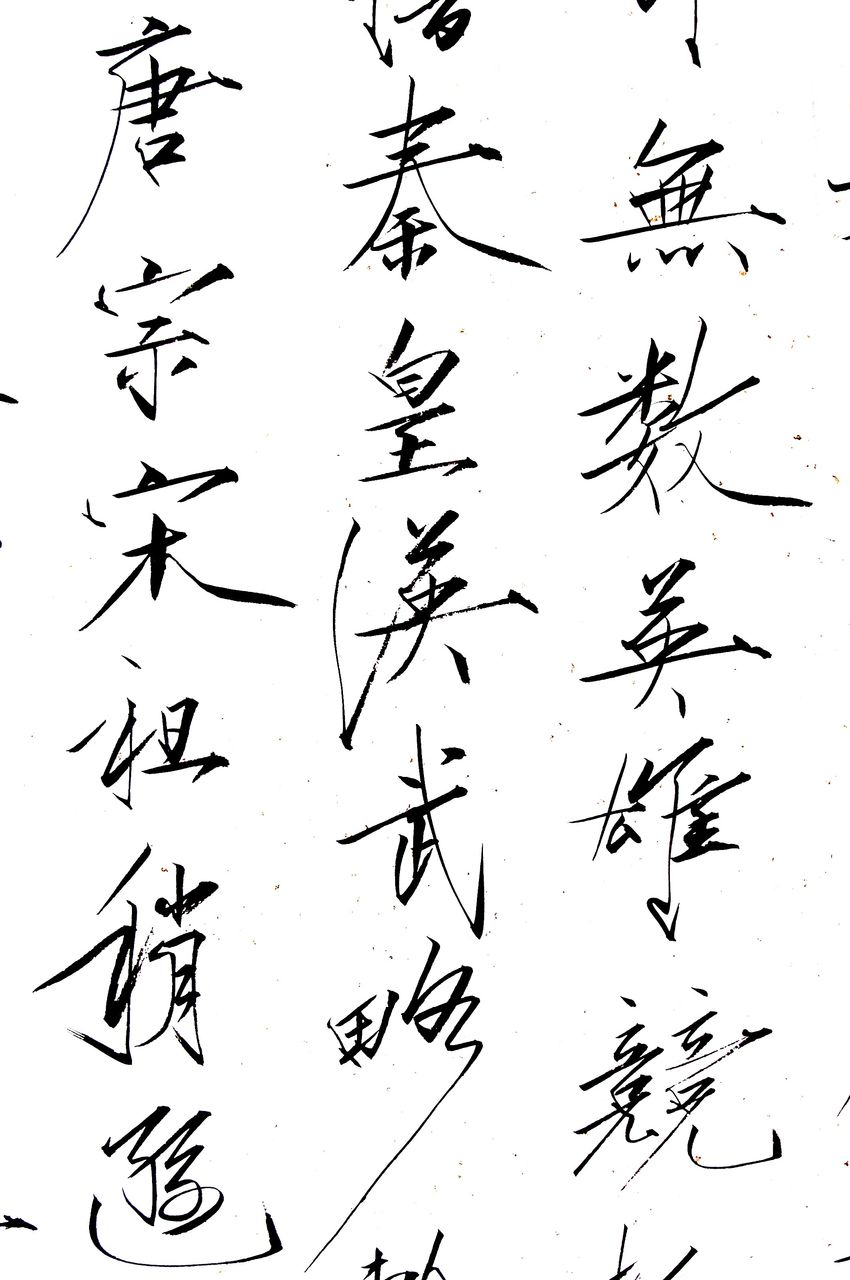 無数英雄競
惜秦皇漢武略
唐宗宋祖稍遜